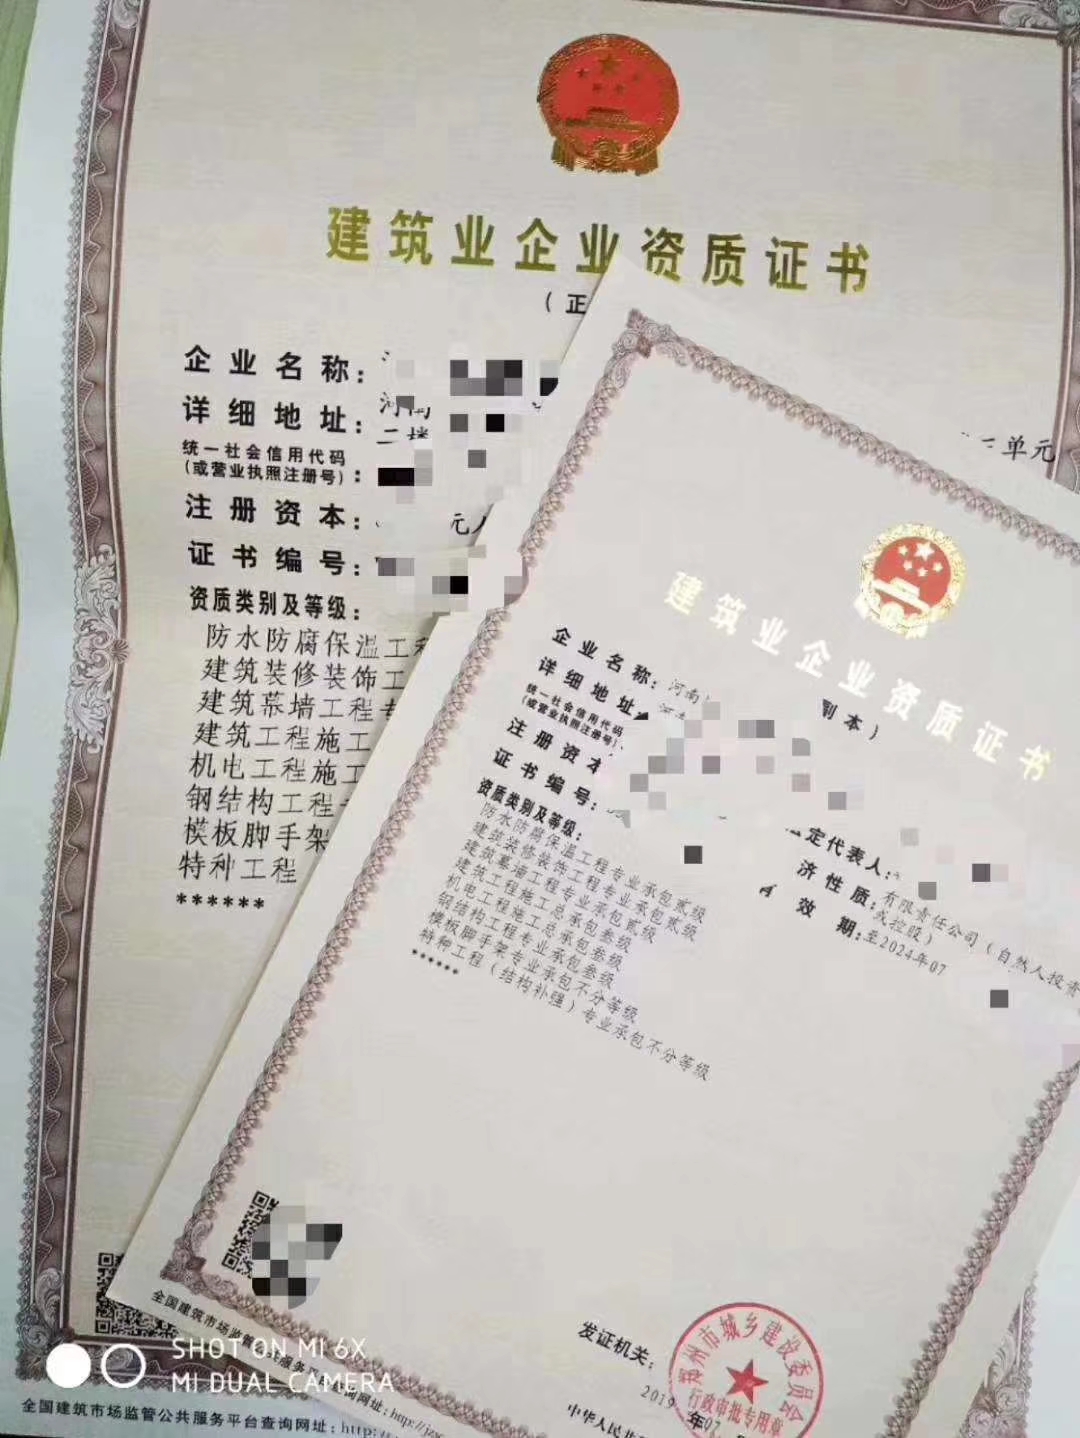 建筑业企业资质证书
（正
企业名称：
详细地址：河南
二楼
三单元
统一社会信用代码
(或营业执照注册号)：
注册资本：
元人
证书编号：
资质类别及等级：
防水防腐保温工程
建筑装修装饰工
建筑幕墙工程专
建筑工程施工
机电工程施工
钢结构工程专
模板脚手架
特种工程
******
建筑业企业资质证书
副本）
企业名称：河南
详细地址
统一社会信用代码
(或营业执照注册号)：
注册资本
证书编号：
法定代表人：
济性质：有限责任公司（自然人投资
或控股）
有效期：至2024年07
资质类别及等级：
防水防腐保温工程专业承包贰级
建筑装修装饰工程专业承包贰级
建筑幕墙工程专业承包贰级
建筑工程施工总承包叁级
机电工程施工总承包叁级
钢结构工程专业承包叁级
模板脚手架专业承包不分等级
特种工程（结构补强）专业承包不分等级
******
发证机关：
郑州市城乡建设委员会
行政审批专用章
2019年07
中华人民共
全国建筑市场监管
共服务平
查询网址：http://jzs
SHOT ON MI 6X
MI DUAL CAMERA
全国建筑市场监管公共服务平台查询网址：http: